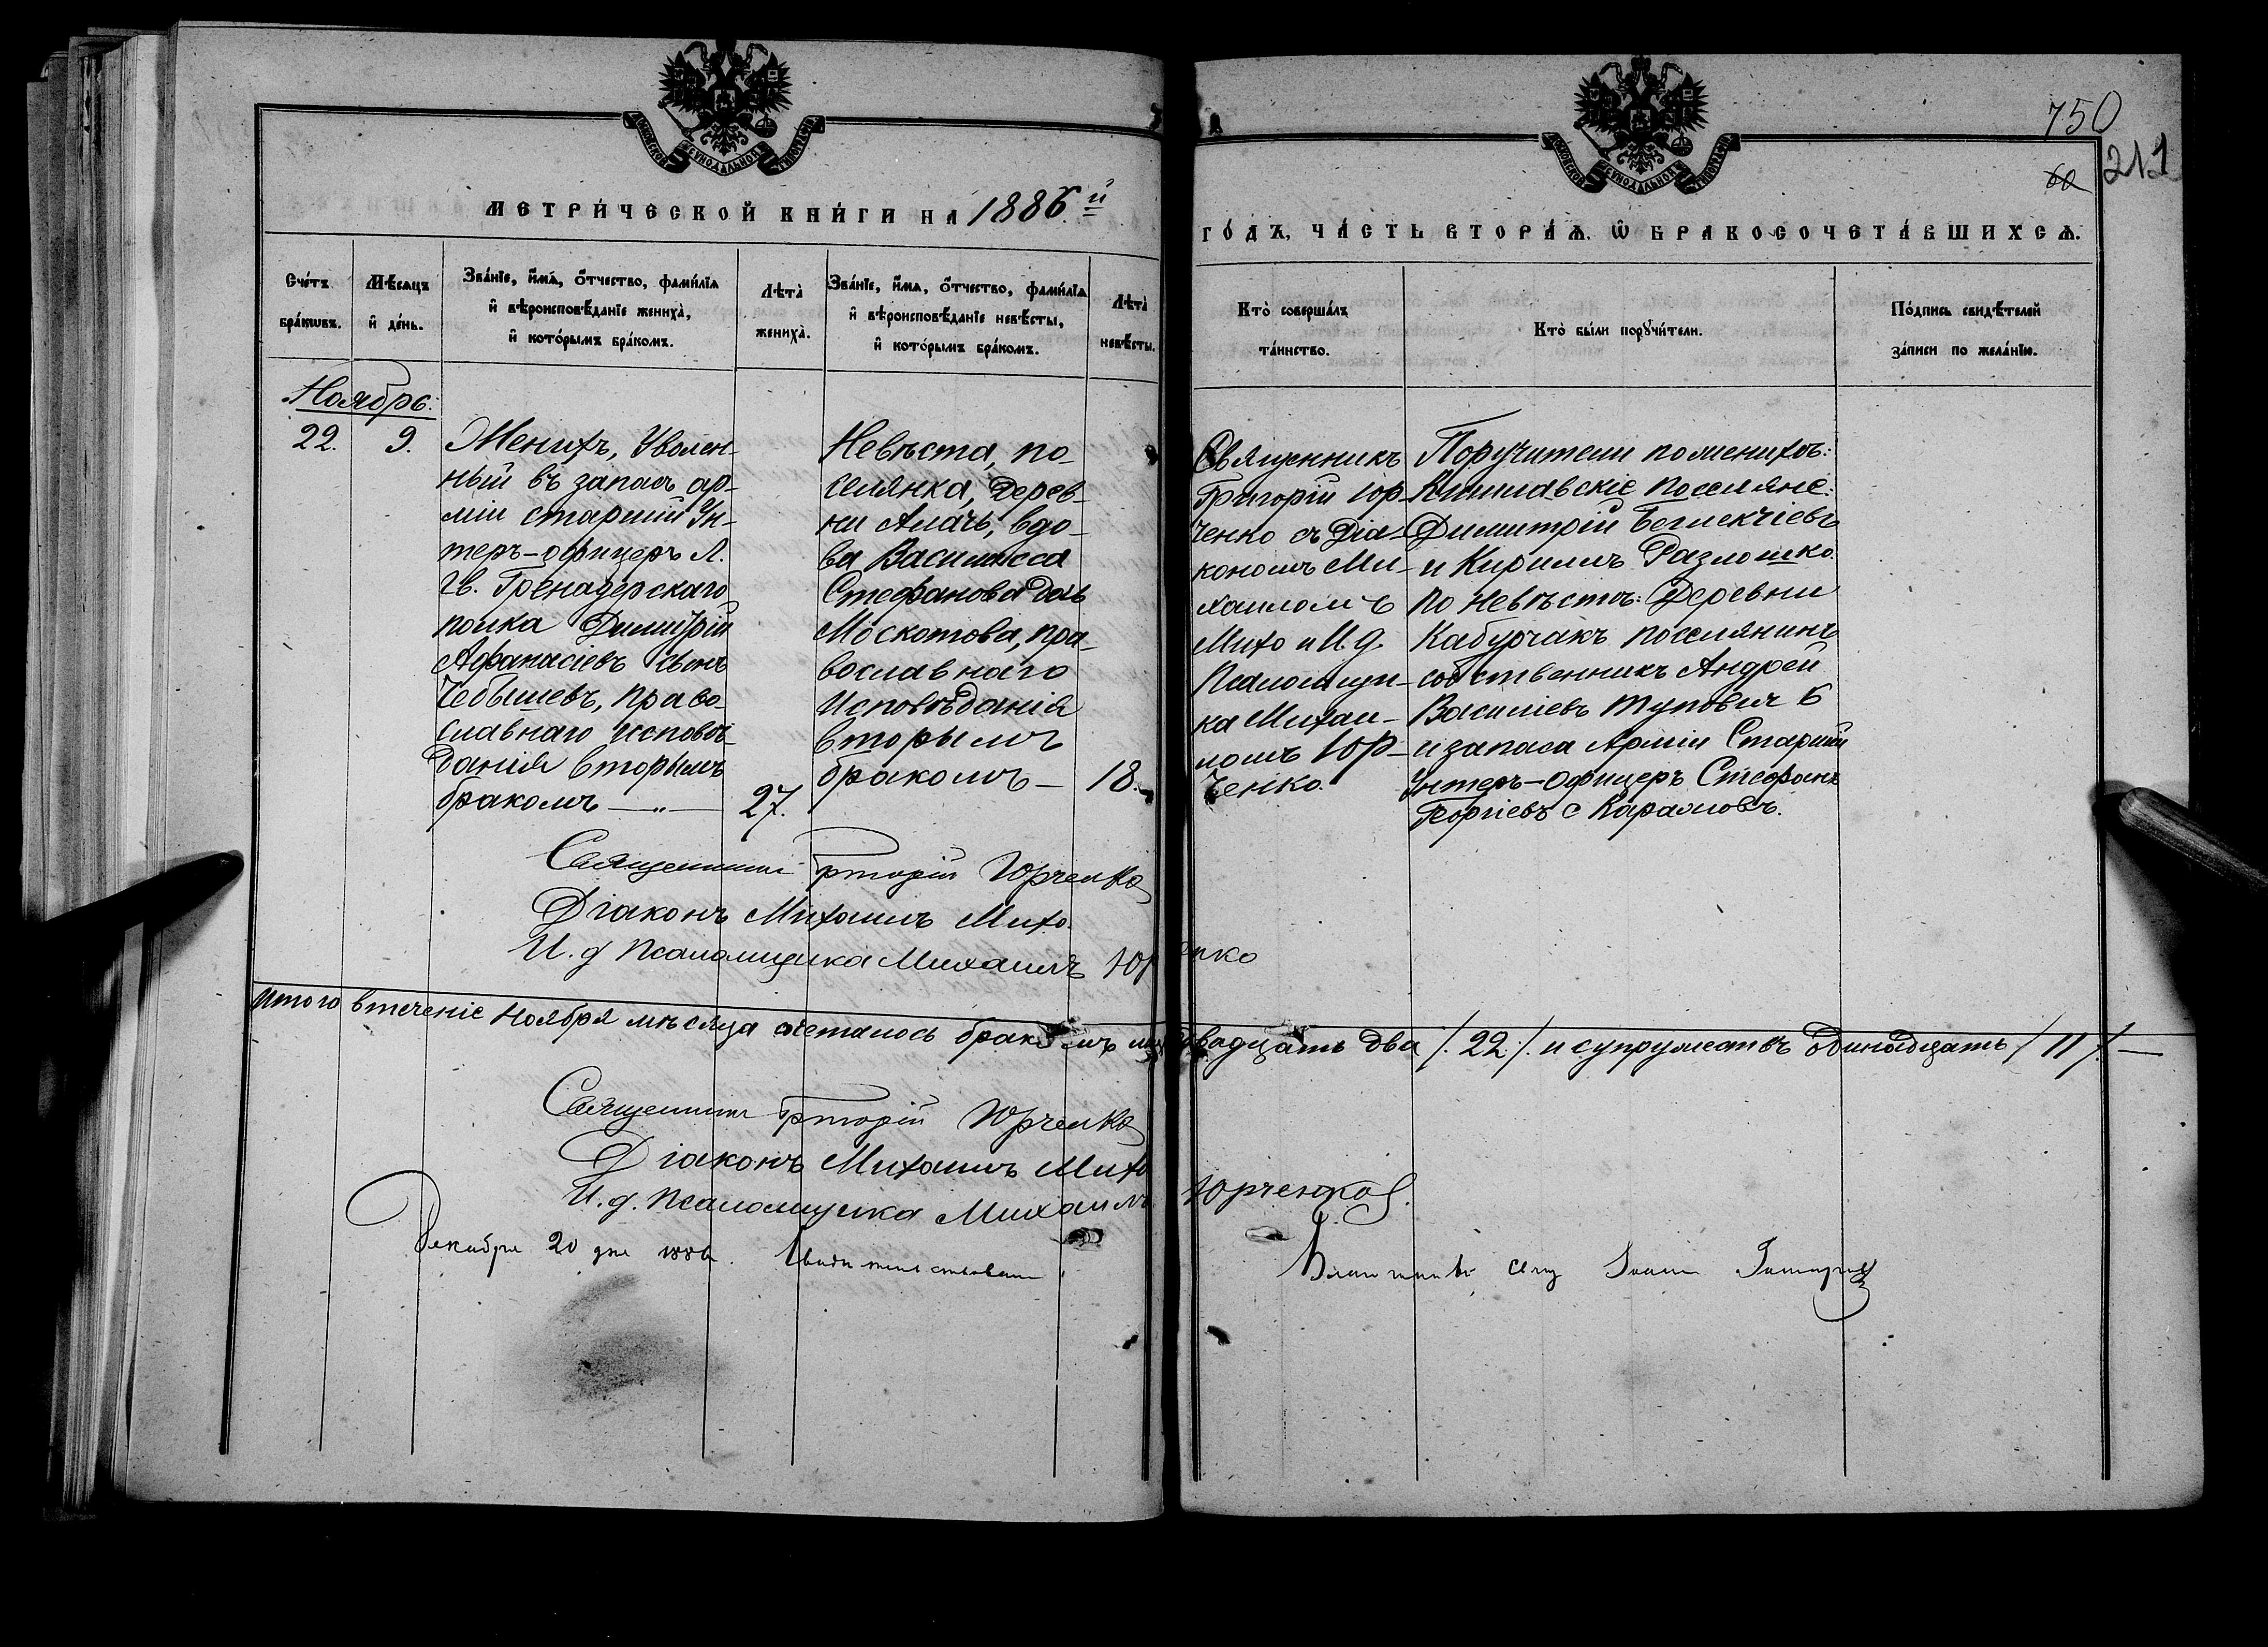 750
211
60
МОСКОВСКОЙ СУНОДАЛЬНОЙ ТИПОГРАФІИ
МОСКОВСКОЙ СУНОДАЛЬНОЙ ТИПОГРАФІИ
МЕТРИ́ЧЕСКОЙ КНИ́ГИ НА 1886й
ГО́ДЪ, ЧА́СТЬ ВТОРА́Ѧ, Ѡ БРАКОСОЧЕТА́ВШИХСѦ.
Сче́тъ
бра́кѡвъ.
Мѣ́сѧцъ
и҆ де́нь.
Зва́нїе, и҆́мѧ, ѻ҆́тчество, фами́лїѧ
и҆ вѣроисповѣ́данїе жениха̀,
и҆ кото́рымъ бра́комъ.
Лѣта̀
жениха̀.
Зва́нїе, и҆́мѧ, ѻ҆́тчество, фами́лїѧ
и҆ вѣроисповѣ́данїе невѣ́сты,
и҆ кото́рымъ бра́комъ.
Лѣта̀
невѣ́сты.
Кто̀ соверша́лъ
та́инство.
Кто̀ бы́ли порꙋчи́тели.
По́дпись свидѣ́телей
за́писи по жела́нїю.
Ноябрь:
22.
9.
Женихъ, Уволен-
ный въ запасъ ар-
міи старшій Ун-
теръ-офицеръ Л.
Гв. Гренадерскаго
полка Димитрій
Афанасіевъ сынъ
Чебышевъ, право-
славнаго исповѣ-
данія вторымъ
бракомъ — „ —
27.
Невѣста, по-
селянка, дерев-
ни Алачъ, вдо-
ва Василисса
Стефанова дочь
Москотова, пра-
вославнаго
Исповѣданія
вторымъ
бракомъ —
18.
Священникъ
Григорій Юр-
ченко съ Діа-
кономъ Ми-
хаиломъ
Михо и И. д.
Псаломщи-
ка Михаи-
ломъ Юр-
ченко.
Поручители по женихѣ:
поселяне:
Димитрій Беглекчіевъ
и Кириллъ Разлошко.
По Невѣстѣ: Деревни
Кабурчакъ поселянинъ
собственникъ Андрей
Василіевъ Туповичъ
и запаса Арміи Старшій
Унтеръ-офицеръ Стефанъ
Георгіевъ с Карамовъ.
Священникъ Григорій Юрченко
Діаконъ Михаилъ Михо.
И. д Псаломщика Михаилъ Юрченко
Итого втеченіе Ноября мѣсяца счеталось бракомъ лицъ двадцать два /. 22 /. и супружествъ одинадцать / 11 /. —
Священникъ Григорій Юрченко
Діаконъ Михаилъ Михо
И. д. Псаломщика Михаилъ Юрченко.
Декабря 20 дня 1886. Свидѣтельствовалъ
Благочинный Свящ Іоаннъ